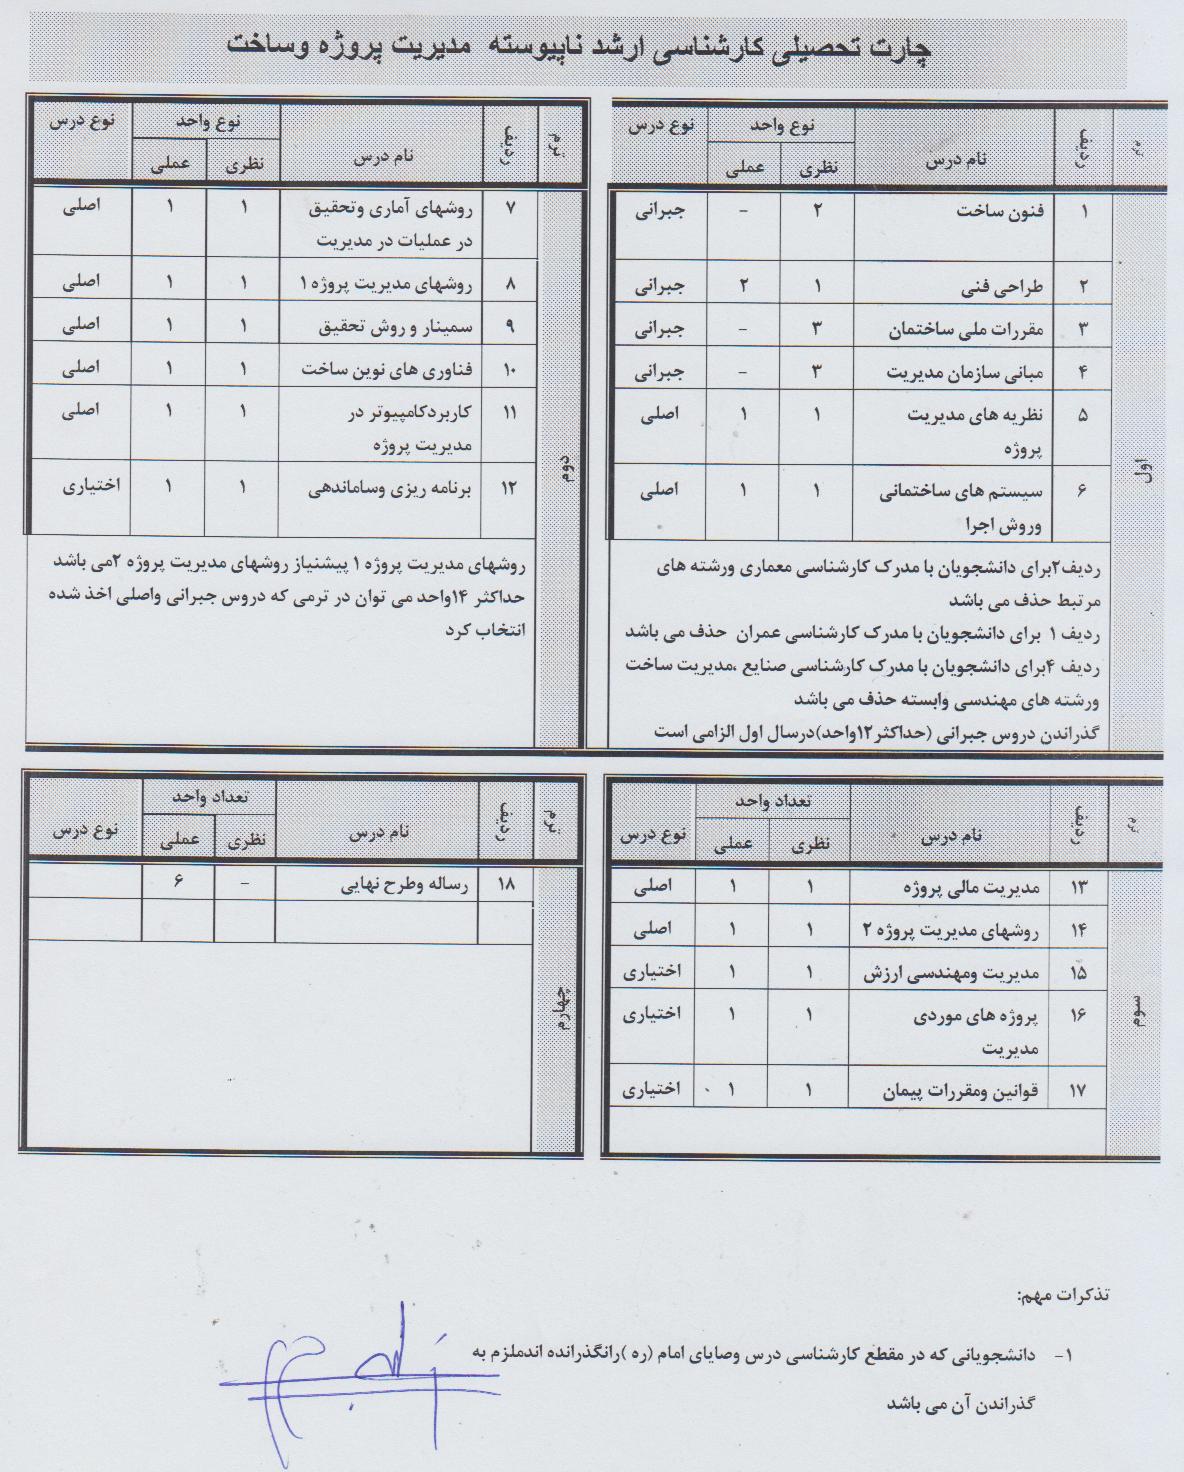 چارت تحصیلی کارشناسی ارشد ناپیوسته مدیریت پروژه وساخت
ترم ردیف نام درس نوع واحد نوع درس
نظری عملی
اول
۱ فنون ساخت ۲ - جبرانی
۲ طراحی فنی ۱ ۲ جبرانی
۳ مقررات ملی ساختمان ۳ - جبرانی
۴ مبانی سازمان مدیریت ۳ - جبرانی
۵ نظریه های مدیریت ۱ ۱ اصلی
پروژه
۶ سیستم های ساختمانی ۱ ۱ اصلی
وروش اجرا
ردیف۲برای دانشجویان با مدرک کارشناسی معماری ورشته های
مرتبط حذف می باشد
ردیف ۱ برای دانشجویان با مدرک کارشناسی عمران حذف می باشد
ردیف ۴برای دانشجویان با مدرک کارشناسی صنایع ،مدیریت ساخت
ورشته های مهندسی وابسته حذف می باشد
گذراندن دروس جبرانی (حداکثر۱۲واحد)درسال اول الزامی است
ترم ردیف نام درس نوع واحد نوع درس
نظری عملی
دوم
۷ روشهای آماری وتحقیق ۱ ۱ اصلی
در عملیات در مدیریت
۸ روشهای مدیریت پروژه ۱ ۱ ۱ اصلی
۹ سمینار و روش تحقیق ۱ ۱ اصلی
۱۰ فناوری های نوین ساخت ۱ ۱ اصلی
۱۱ کاربردکامپیوتر در ۱ ۱ اصلی
مدیریت پروژه
۱۲ برنامه ریزی وساماندهی ۱ ۱ اختیاری
روشهای مدیریت پروژه ۱ پیشنیاز روشهای مدیریت پروژه ۲می باشد
حداکثر ۱۴واحد می توان در ترمی که دروس جبرانی واصلی اخذ شده
انتخاب کرد
ترم ردیف نام درس تعداد واحد نوع درس
نظری عملی
سوم
۱۳ مدیریت مالی پروژه ۱ ۱ اصلی
۱۴ روشهای مدیریت پروژه ۲ ۱ ۱ اصلی
۱۵ مدیریت ومهندسی ارزش ۱ ۱ اختیاری
۱۶ پروژه های موردی ۱ ۱ اختیاری
مدیریت
۱۷ قوانین ومقررات پیمان ۱ ۱ اختیاری
ترم ردیف نام درس تعداد واحد نوع درس
نظری عملی
چهارم
۱۸ رساله وطرح نهایی - ۶
تذکرات مهم:
۱- دانشجویانی که در مقطع کارشناسی درس وصایای امام (ره )رانگذرانده اندملزم به
گذراندن آن می باشد